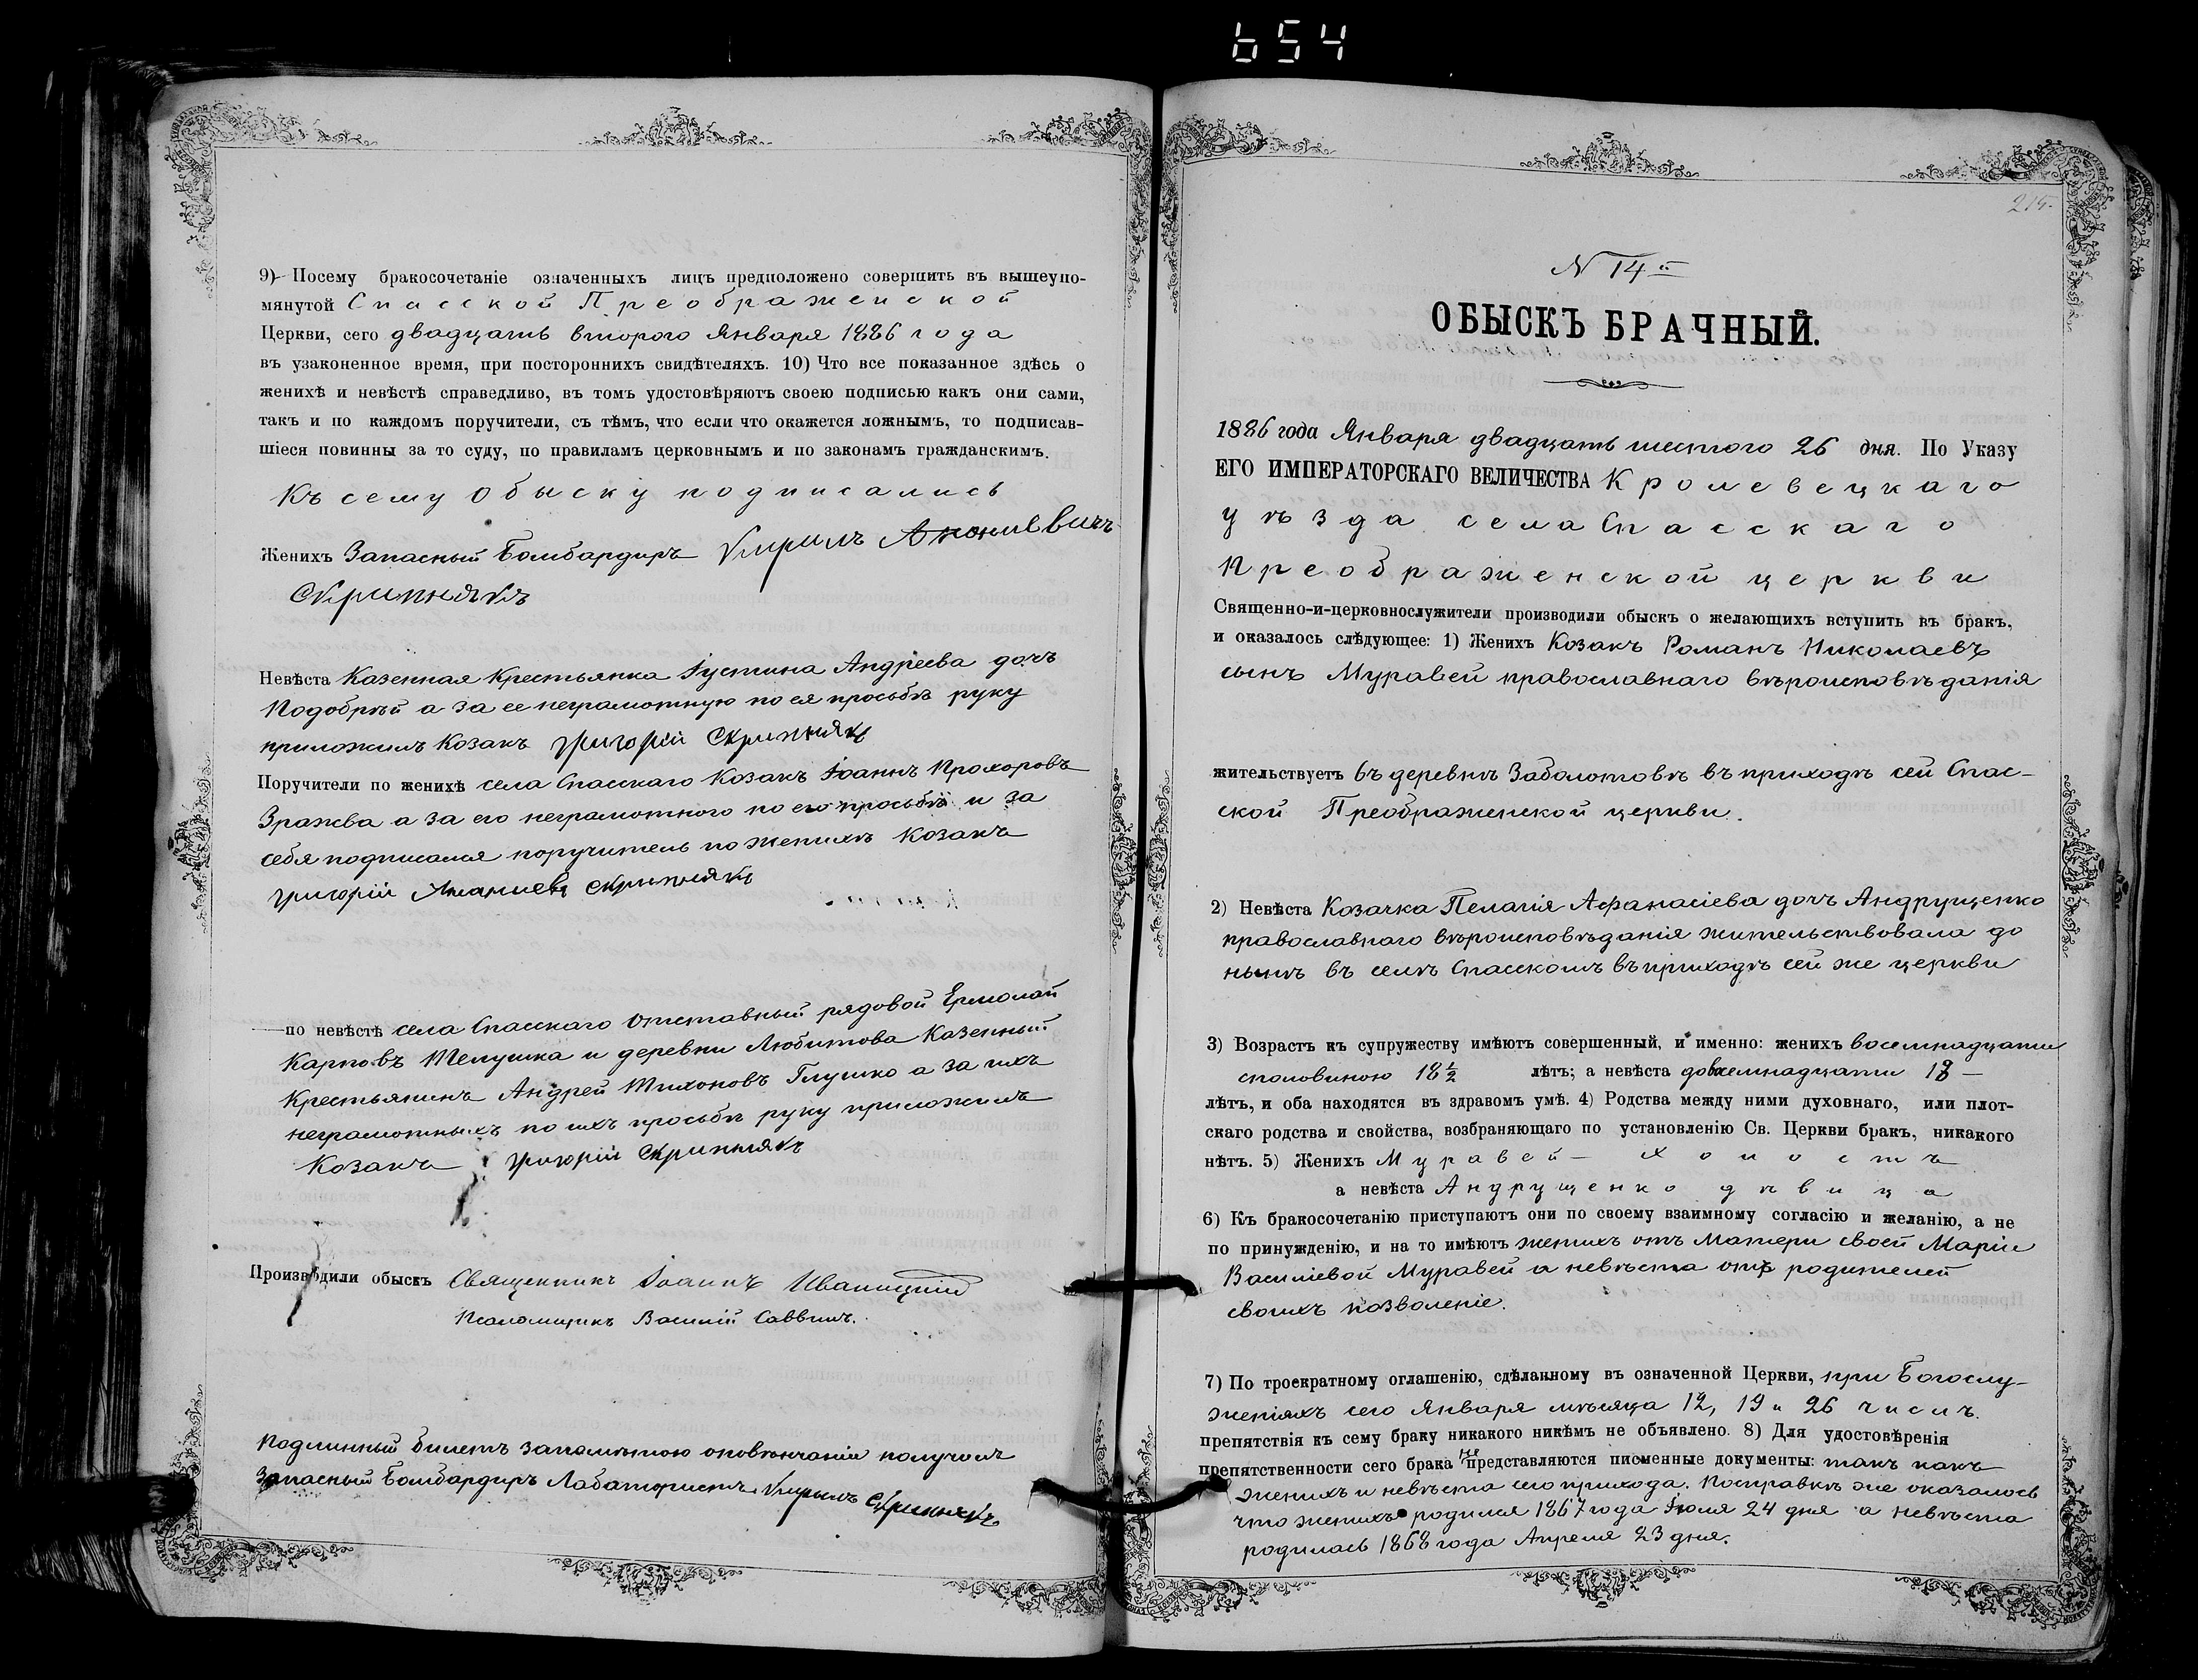 654
9) Посему бракосочетаніе означенныхъ лицъ предположено совершить въ вышеупо-
мянутой Спасской Преображенской
Церкви, сего двадцать второго Января 1886 года
въ узаконенное время, при постороннихъ свидѣтеляхъ. 10) Что все показанное здѣсь о
женихѣ и невѣстѣ справедливо, въ томъ удостовѣряютъ своею подписью какъ они сами,
такъ и по каждомъ поручители, съ тѣмъ, что если что окажется ложнымъ, то подписав-
шіеся повинны за то суду, по правиламъ церковнымъ и по законамъ гражданскимъ.
Къ сему обыску подписались
Женихъ Запасный Бомбардиръ Кирилъ
Скрипнякъ
Невѣста Казенная Крестьянка Іустина Андреева дочь
Подобрѣй а за ее неграмотную по ея просьбѣ руку
приложилъ Козакъ Григорій Скрипнякъ
Поручители по женихѣ села Спасскаго Козакъ Іоаннъ Прохоровъ
Зражва а за его неграмотного по его просьбѣ и за
себя подписался поручитель по женихѣ Козакъ
Григорій Ананиевъ Скрипнякъ
по невѣстѣ села Спасскаго Отставный рядовой Ермолай
Карповъ Телушка и деревни Любитова Казенный
Крестьянинъ Андрей Тихоновъ Глушко а за ихъ
неграмотныхъ по ихъ просьбѣ руку приложилъ
Козакъ Григорій Скрипнякъ
Производили обыскъ Священникъ Іоаннъ Иваницкій
Псаломщикъ Василій Саввичъ.
Подлинный билетъ запомѣтою оповѣнчаніи получилъ
Запасный Бомбардиръ Лабатористъ Кирылъ Скрипнякъ
215.
N 14й
ОБЫСКЪ БРАЧНЫЙ.
1886 года Января двадцать шестого 26 дня. По Указу
ЕГО ИМПЕРАТОРСКАГО ВЕЛИЧЕСТВА Кролевецкаго
уѣзда села Спасскаго
Преображенской церкви
Священно-и-церковнослужители производили обыскъ о желающихъ вступить въ бракъ,
и оказалось слѣдующее: 1) Женихъ Козакъ Романъ Николаевъ
сынъ Муравей православнаго вѣроисповѣданія
жительствуетъ въ деревнѣ Заболотовѣ въ приходѣ сей Спас-
ской Преображенской церкви.
2) Невѣста Козачка Пелагія Афанасіева дочь Андрущенко
православнаго вѣроисповѣданія жительствовала до
нынѣ въ селѣ Спасскомъ въ приходѣ сей же церкви
3) Возрастъ къ супружеству имѣютъ совершенный, и именно: женихъ восемнадцати
споловиною 18½ лѣтъ; а невѣста довосемнадцати 18 —
лѣтъ, и оба находятся въ здравомъ умѣ. 4) Родства между ними духовнаго, или плот-
скаго родства и свойства, возбраняющаго по установленію Св. Церкви бракъ, никакого
нѣтъ. 5) Женихъ Муравей — холостъ
а невѣста Андрущенко дѣвица
6) Къ бракосочетанію приступаютъ они по своему взаимному согласію и желанію, а не
по принужденію, и на то имѣютъ женихъ отъ Матери своей Маріи
Василіевой Муравей а невѣста отъ родителей
своихъ позволеніе.
7) По троекратному оглашенію, сдѣланному въ означенной Церкви, при Богослу-
женіяхъ сего Января мѣсяца 12, 19 и 26 числъ.
препятствія къ сему браку никакого никѣмъ не объявлено. 8) Для удостовѣренія
препятственности сего брака не представляются письменные документы: такъ какъ
женихъ и невѣста сего прихода. Посправкѣ же оказалось
что женихъ родился 1867 года Іюля 24 дня а невѣста
родилась 1868 года Апреля 23 дня.